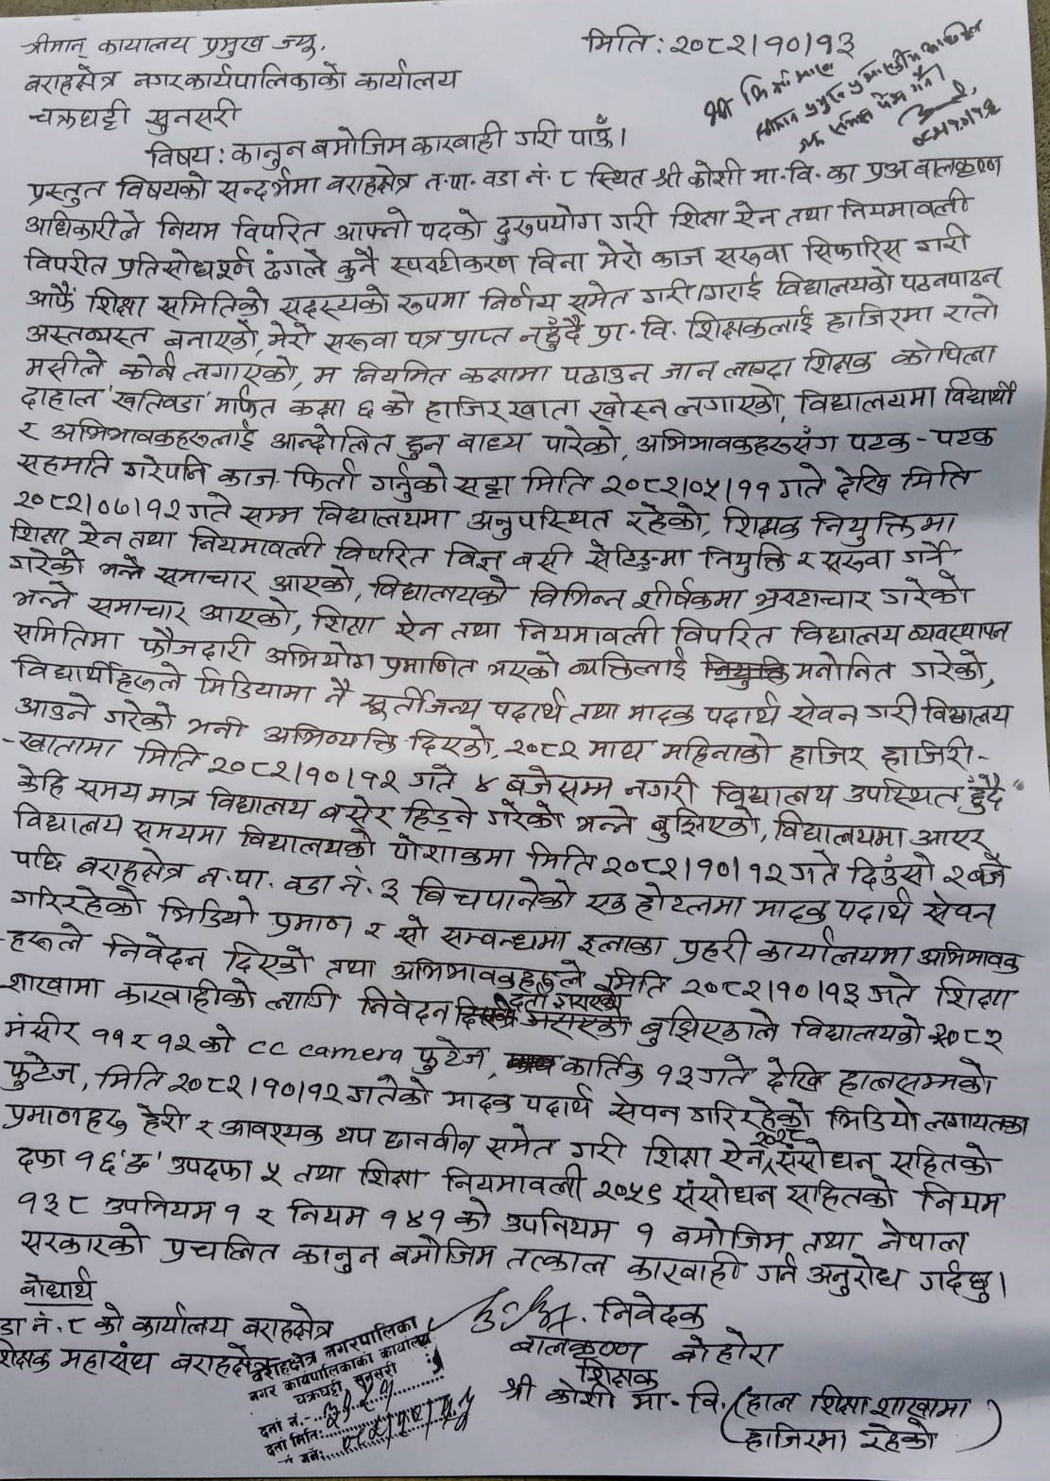 श्रीमान् कायालय प्रमुख ज्यू,
मिति: २०८२।१०।१३
बराहक्षेत्र नगरकार्यपालिकाको कार्यालय
चक्रघट्टी सुनसरी
विषय: कानुन बमोजिम कारबाही गरी पाऊँ।
प्रस्तुत विषयको सन्दर्भमा बराहक्षेत्र न.पा. वडा नं. ८ स्थित श्री कोशी मा.वि. का प्रअ बालकृष्ण
अधिकारीले नियम विपरित आफ्नो पदको दुरुपयोग गरी शिक्षा ऐन तथा नियमावली
विपरीत प्रतिसोधपूर्ण ढंगले कुनै स्पष्टीकरण विना मेरो काज सरुवा सिफारिस गरी
आफैं शिक्षा समितिको सदस्यको रुपमा निर्णय समेत गरी।गराई विद्यालयको पठनपाठन
अस्तव्यस्त बनाएको, मेरो सरुवा पत्र प्राप्त नहुँदै प्रा.वि. शिक्षकलाई हाजिरमा रातो
मसीले कोर्न लगाएको, म नियमित कक्षामा पढाउन जान लाग्दा शिक्षक कोपिला
दाहाल 'खतिवडा' मार्फत कक्षा ६ को हाजिर खाता खोस्न लगाएको, विद्यालयमा विद्यार्थी
र अभिभावकहरुलाई आन्दोलित हुन बाध्य पारेको, अभिभावकहरुसंग पटक-पटक
सहमति गरेपनि काज फिर्ता गर्नुको सट्टा मिति २०८२।०५।११ गते देखि मिति
२०८२।०७।१२ गते सम्म विद्यालयमा अनुपस्थित रहेको, शिक्षक नियुक्तिमा
शिक्षा ऐन तथा नियमावली विपरित विज्ञ बसी सेटिङमा नियुक्ति र सरुवा गर्ने
गरेको भन्ने समाचार आएको, विद्यालयको विभिन्न शीर्षकमा भ्रष्टाचार गरेको
भन्ने समाचार आएको, शिक्षा ऐन तथा नियमावली विपरित विद्यालय व्यवस्थापन
समितिमा फौजदारी अभियोग प्रमाणित भएको व्यक्तिलाई मनोनित गरेको,
विद्यार्थीहरुले मिडियामा नै सूर्तीजन्य पदार्थ तथा मादक पदार्थ सेवन गरी विद्यालय
आउने गरेको भनी अभिव्यक्ति दिएको, २०८२ माघ महिनाको हाजिर हाजिरी-
-खातामा मिति २०८२।१०।१२ गते ४ बजेसम्म नगरी विद्यालय उपस्थित हुँदै
केहि समय मात्र विद्यालय बसेर हिड्ने गरेको भन्ने बुझिएको, विद्यालयमा आएर
विद्यालय समयमा विद्यालयको पोशाकमा मिति २०८२।१०।१२ गते दिउँसो २ बजे
पछि बराहक्षेत्र न.पा. वडा नं. ३ बिचपानेको एक होटलमा मादक पदार्थ सेवन
गरिरहेको भिडियो प्रमाण र सो सम्वन्धमा इलाका प्रहरी कार्यालयमा अभिभावक
हरुले निवेदन दिएको तथा अभिभावकहरुले मिति २०८२।१०।१३ गते शिक्षा
शाखामा कारवाहीको लागि निवेदन दर्ता गराएको बुझिएकाले विद्यालयको २०८२
मंसीर ११ र १२ को cc camera फुटेज, कार्तिक १३ गते देखि हालसम्मको
फुटेज, मिति २०८२।१०।१२ गतेको मादक पदार्थ सेवन गरिरहेको भिडियो लगायतका
प्रमाणहरु हेरी र आवश्यक थप छानवीन समेत गरी शिक्षा ऐन २०२८ संसोधन सहितको
दफा १६'ऊ' उपदफा ५ तथा शिक्षा नियमावली २०५९ संसोधन सहितको नियम
१३८ उपनियम १ र नियम १४१ को उपनियम १ बमोजिम तथा नेपाल
सरकारको प्रचलित कानुन बमोजिम तत्काल कारवाही गर्न अनुरोध गर्दछु।
बोधार्थ
डा नं. ८ को कार्यालय बराहक्षेत्र
शिक्षक महासंघ बराहक्षेत्र
बराहक्षेत्र नगरपालिका
नगर कार्यपालिकाको कार्यालय
चक्रघट्टी सुनसरी
दर्ता नं.
दर्ता मिति:
निवेदक
बालकृष्ण बोहोरा
शिक्षक
श्री कोशी मा.वि. (हाल शिक्षा शाखामा
हाजिरमा रहेको)